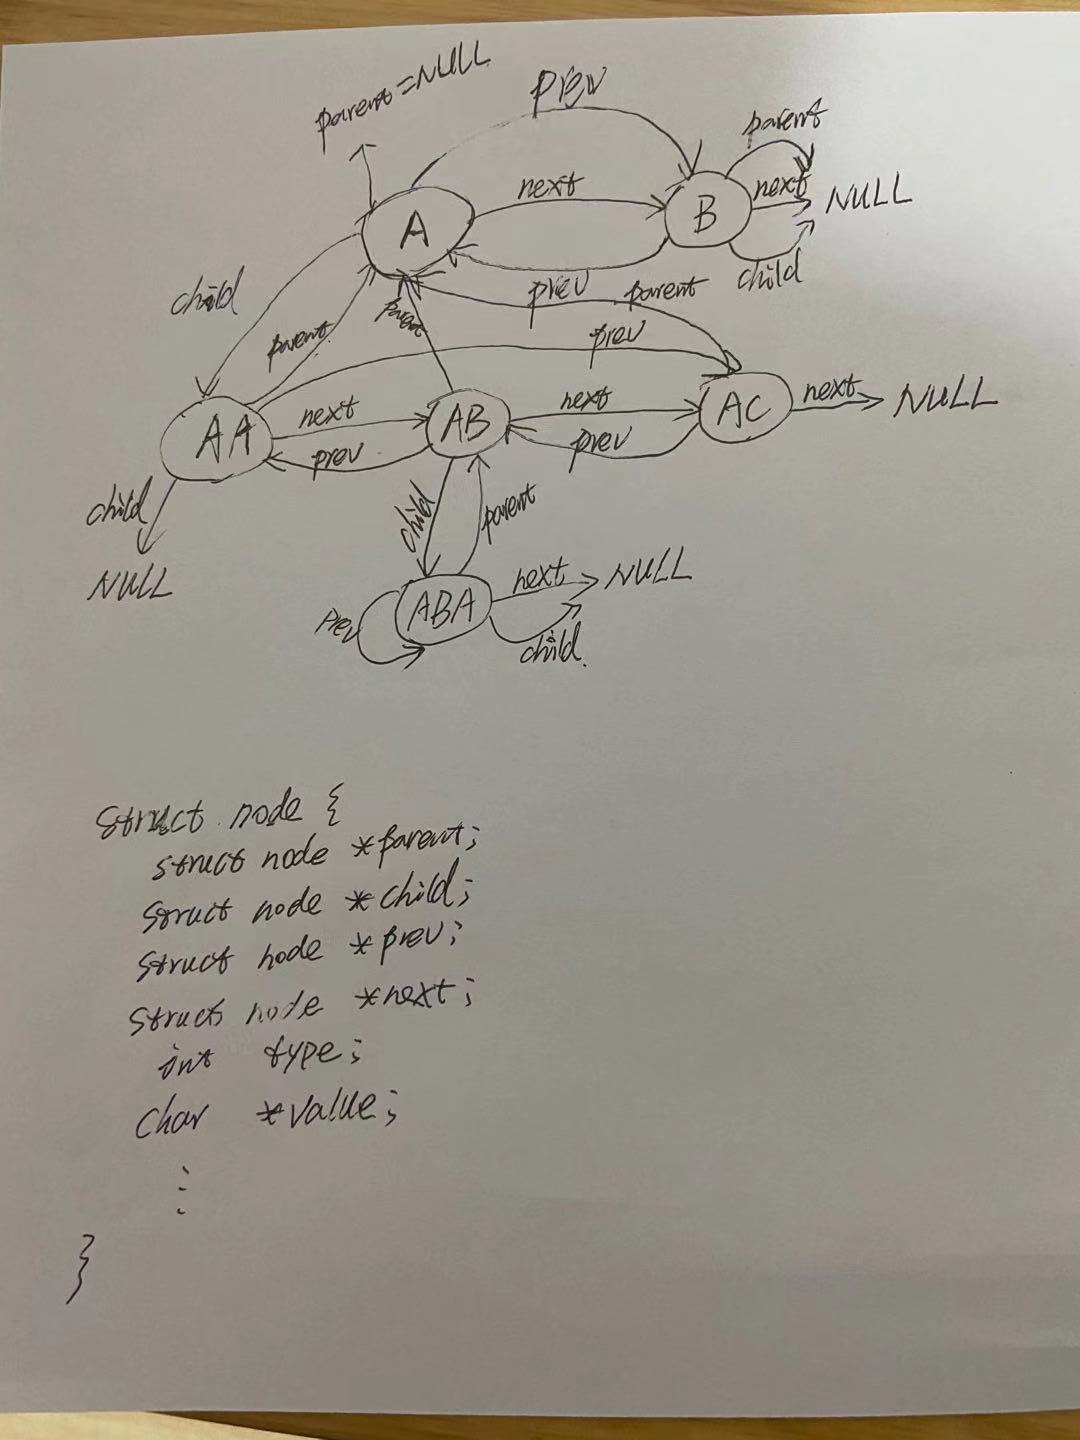 parent=NULL
prev
parent
A
next
B
next
NULL
child
prev
child
parent
parent
parent
prev
AA
next
prev
AB
next
prev
AC
next
NULL
child
NULL
child
parent
prev
ABA
next
NULL
child.
struct node {
struct node *parent;
struct node *child;
struct node *prev;
struct node *next;
int type;
char *value;
⋮
}